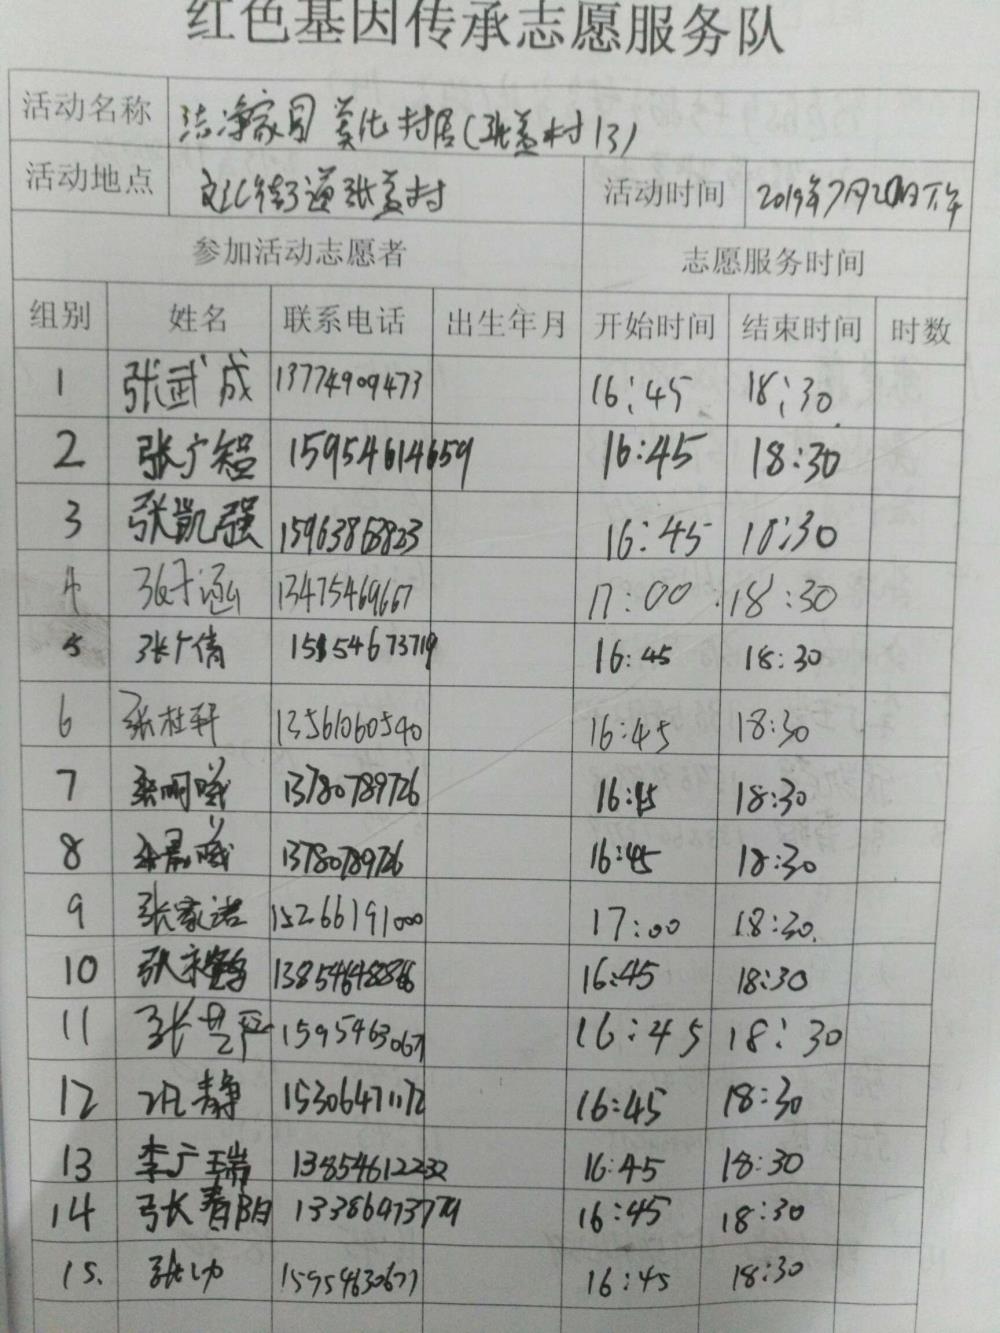 红色基因传承志愿服务队
活动名称 洁净家园 美化村居(张盖村13)
活动地点 文汇街道张盖村 活动时间 2019年7月20日下午
参加活动志愿者 志愿服务时间
组别 姓名 联系电话 出生年月 开始时间 结束时间 时数
1 张武成 13774909473 16:45 18:30
2 张广智 15954614659 16:45 18:30
3 张凯强 16:45 18:30
4 张子涵 13475469667 17:00 18:30
5 张广倩 15154673719 16:45 18:30
6 张桂轩 13561060540 16:45 18:30
7 13780789726 16:45 18:30
8 13780789726 16:45 18:30
9 张家诺 15266191000 17:00 18:30
10 16:45 18:30
11 张芝严 15954630671 16:45 18:30
12 巩静 15306471172 16:45 18:30
13 李广瑞 13854612232 16:45 18:30
14 张春阳 16:45 18:30
15. 15954630671 16:45 18:30